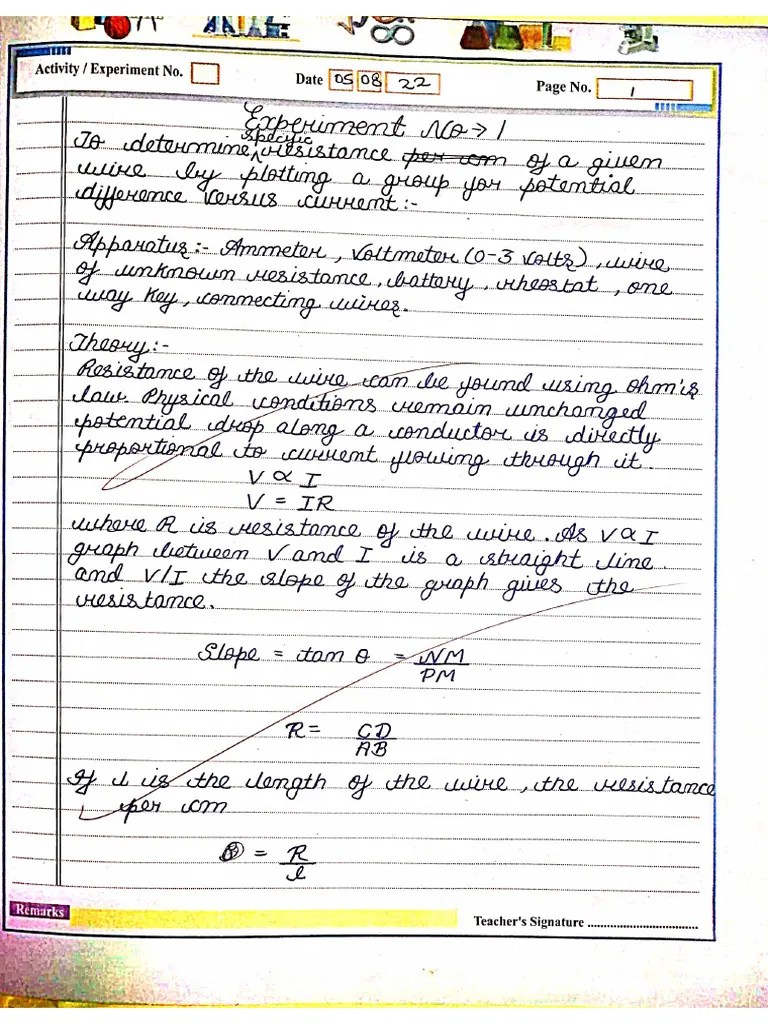 Activity / Experiment No.
Date 05 08 22
Page No. 1
Experiment No → 1
To determine specific resistance per cm of a given
wire by plotting a group for potential
difference versus current :-
Apparatus :- Ammeter, Voltmeter (0-3 volts), wire
of unknown resistance, battery, rheostat, one
way Key, connecting wires.
Theory :-
Resistance of the wire can be found using Ohm's
law. Physical conditions remain unchanged
potential drop along a conductor is directly
proportional to current flowing through it.
V ∝ I
V = IR
where R is resistance of the wire. As V ∝ I
graph between V and I is a straight line
and V/I the slope of the graph gives the
resistance.
Slope = tan θ = NM
PM
R = CD
AB
If l is the length of the wire, the resistance
per cm
= R
l
Remarks
Teacher's Signature